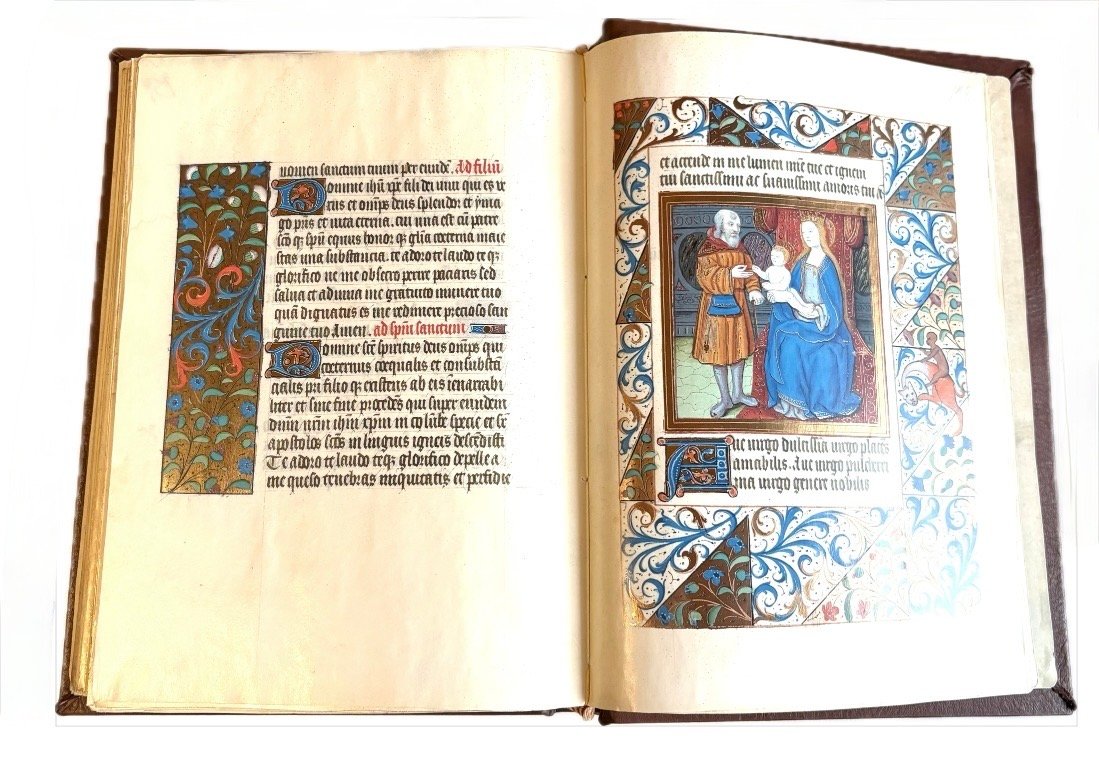 nomen sanctum tuum per eundē. Ad filiū
Domine ihū xp̄e fili dei viui qui es ve
rus et om̄ps deus splendor et ymā
go pris et vita eterna. cui una est cū patre
sc̄o qȝ sp̄u equus honor qȝ gl̄ia coeterna maie
stas una substancia. te adoro te laudo te qȝ
glorifico ne me obsecro perire paciaris sed
salua et adiuua me gratuito munere tuo
quā dignatus es me redimere precioso san
guine tuo Amen. ad sp̄m sanctum
Domine sc̄e spiritus deus om̄ps qui
coeternus coequalis et consubstā
cialis pri filio qȝ existens ab eis īenarrabi
liter et sine fine procedēs qui super eundem
dn̄m nr̄m ihm̄ xpm̄ in colūbe specie et sr̄
apostolos sc̄os in linguis igneis descendisti
Te adoro te laudo teqȝ glorifico depelle a
me queso tenebras iniquitatis et perfidie
et accende in me lumen mīe tue et ignem
tui sanctissimi ac suauissimi amoris tui
Aue virgo dulcissīa virgo placēs
amabilis. Aue virgo pulcherri
ma virgo genere nobilis